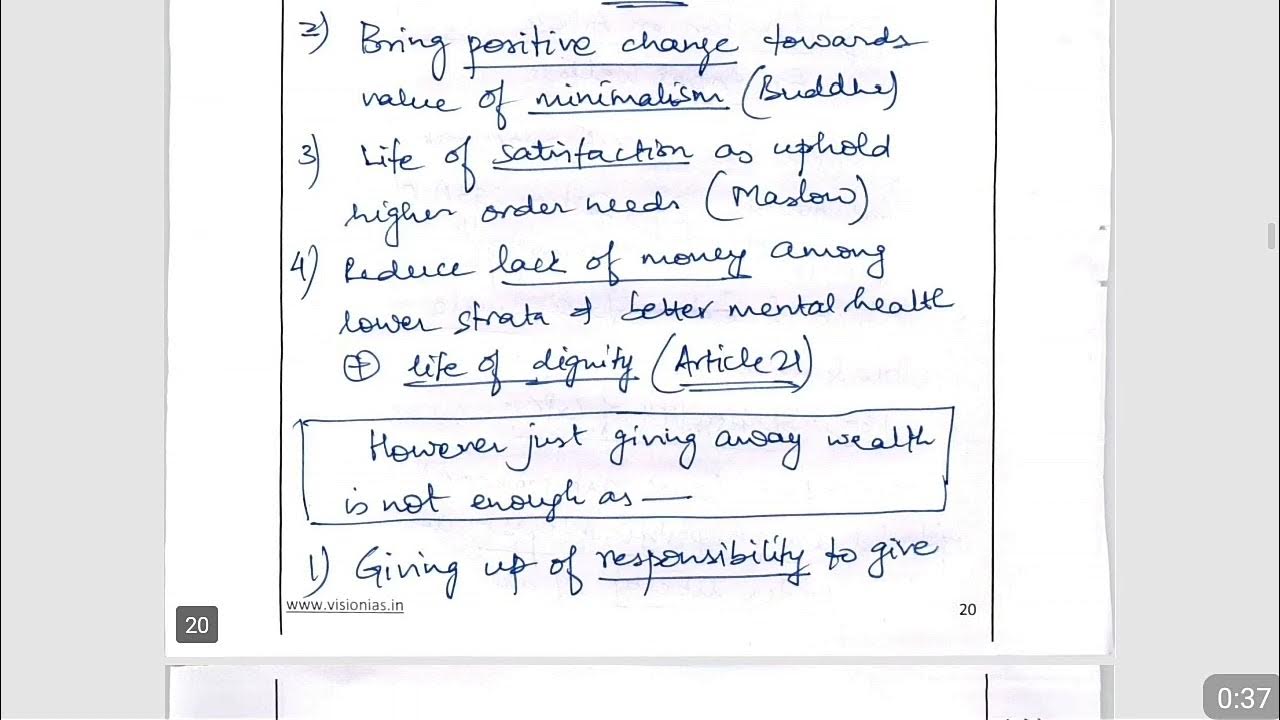 2) Bring positive change towards
value of minimalism (Buddha)
3) Life of satisfaction as uphold
higher order needs (Maslow)
4) Reduce lack of money among
lower strata & better mental health
⊕ life of dignity (Article 21)
However just giving away wealth
is not enough as —
1) Giving up of responsibility to give
www.visionias.in
20
20
0:37